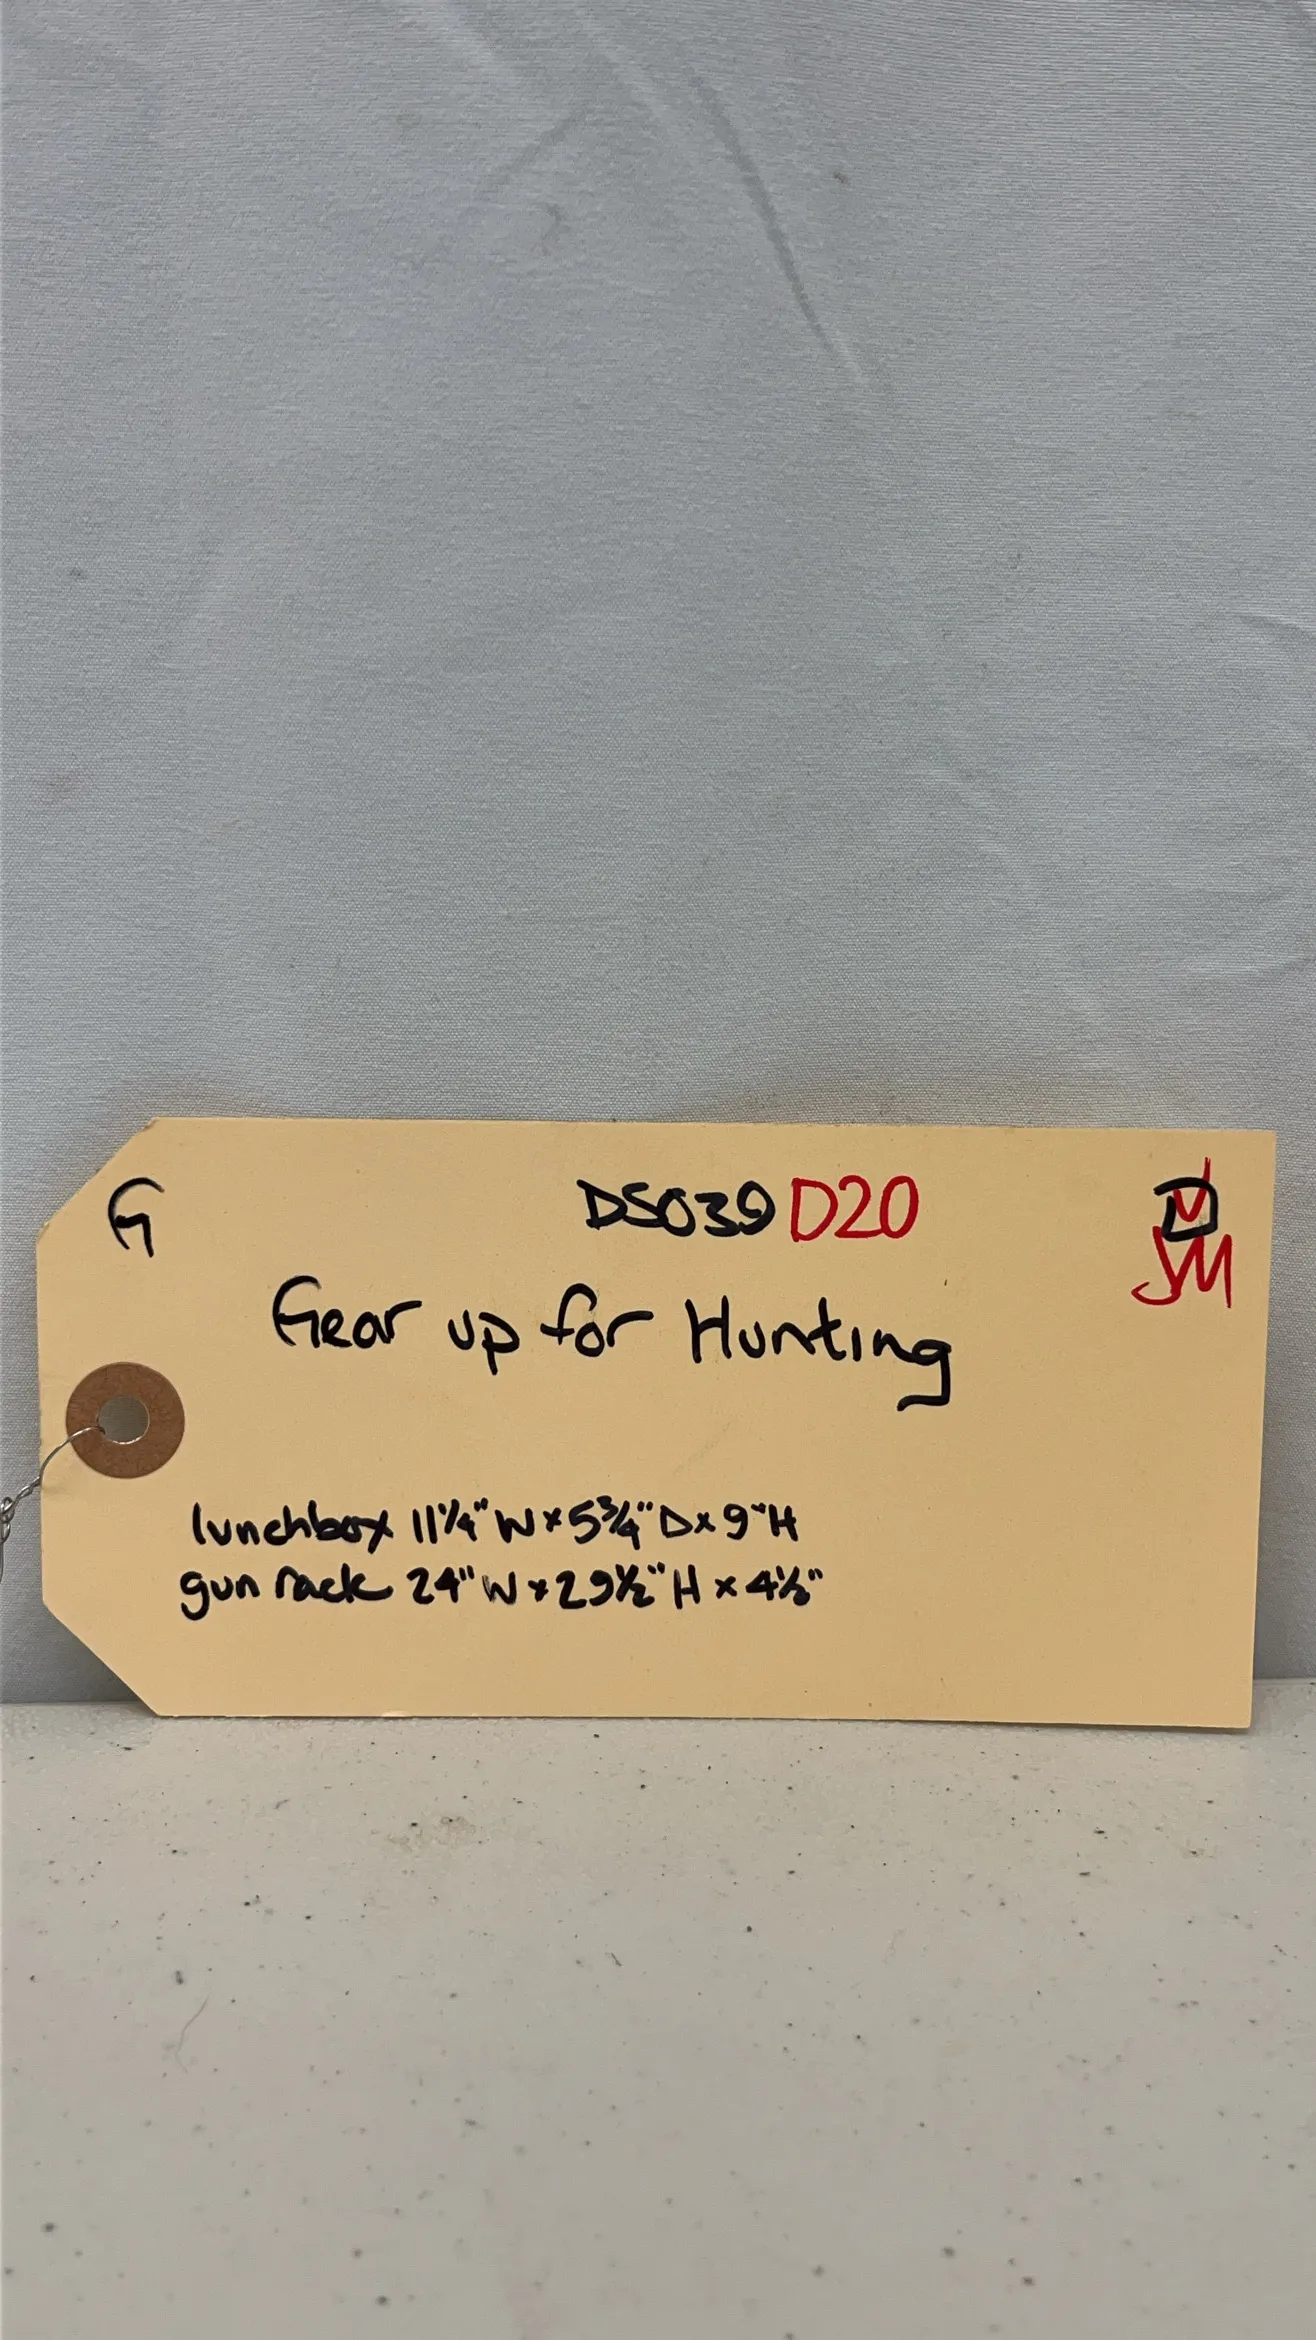 G DS039 D20 D
JM
Gear up for Hunting
lunchbox 11¼" W x 5¾" D x 9" H
gun rack 24" W x 29½" H x 4½"